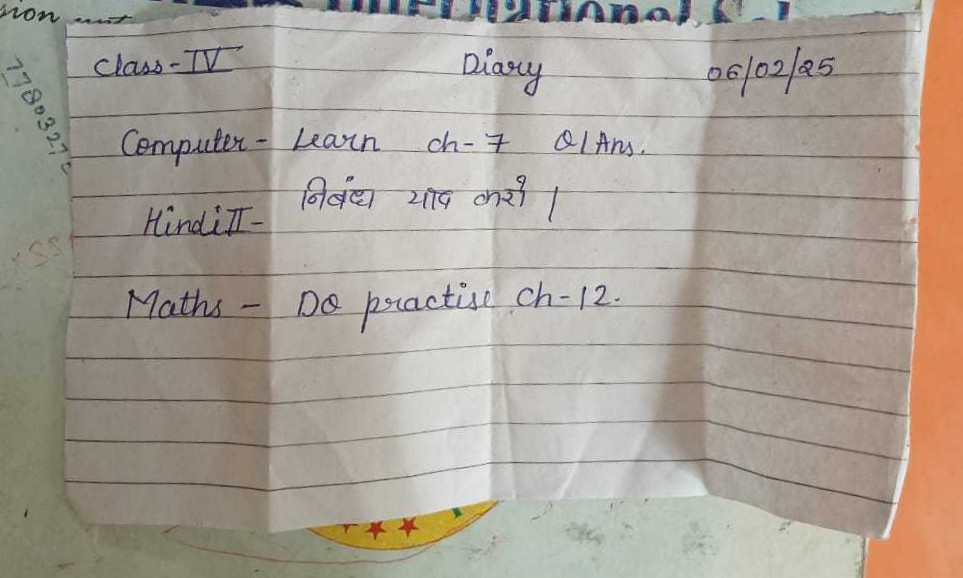 International
Class-IV Diary 06/02/25
Computer - Learn ch-7 Q/Ans.
Hindi II- निबंध याद करो।
Maths - Do practise Ch-12.